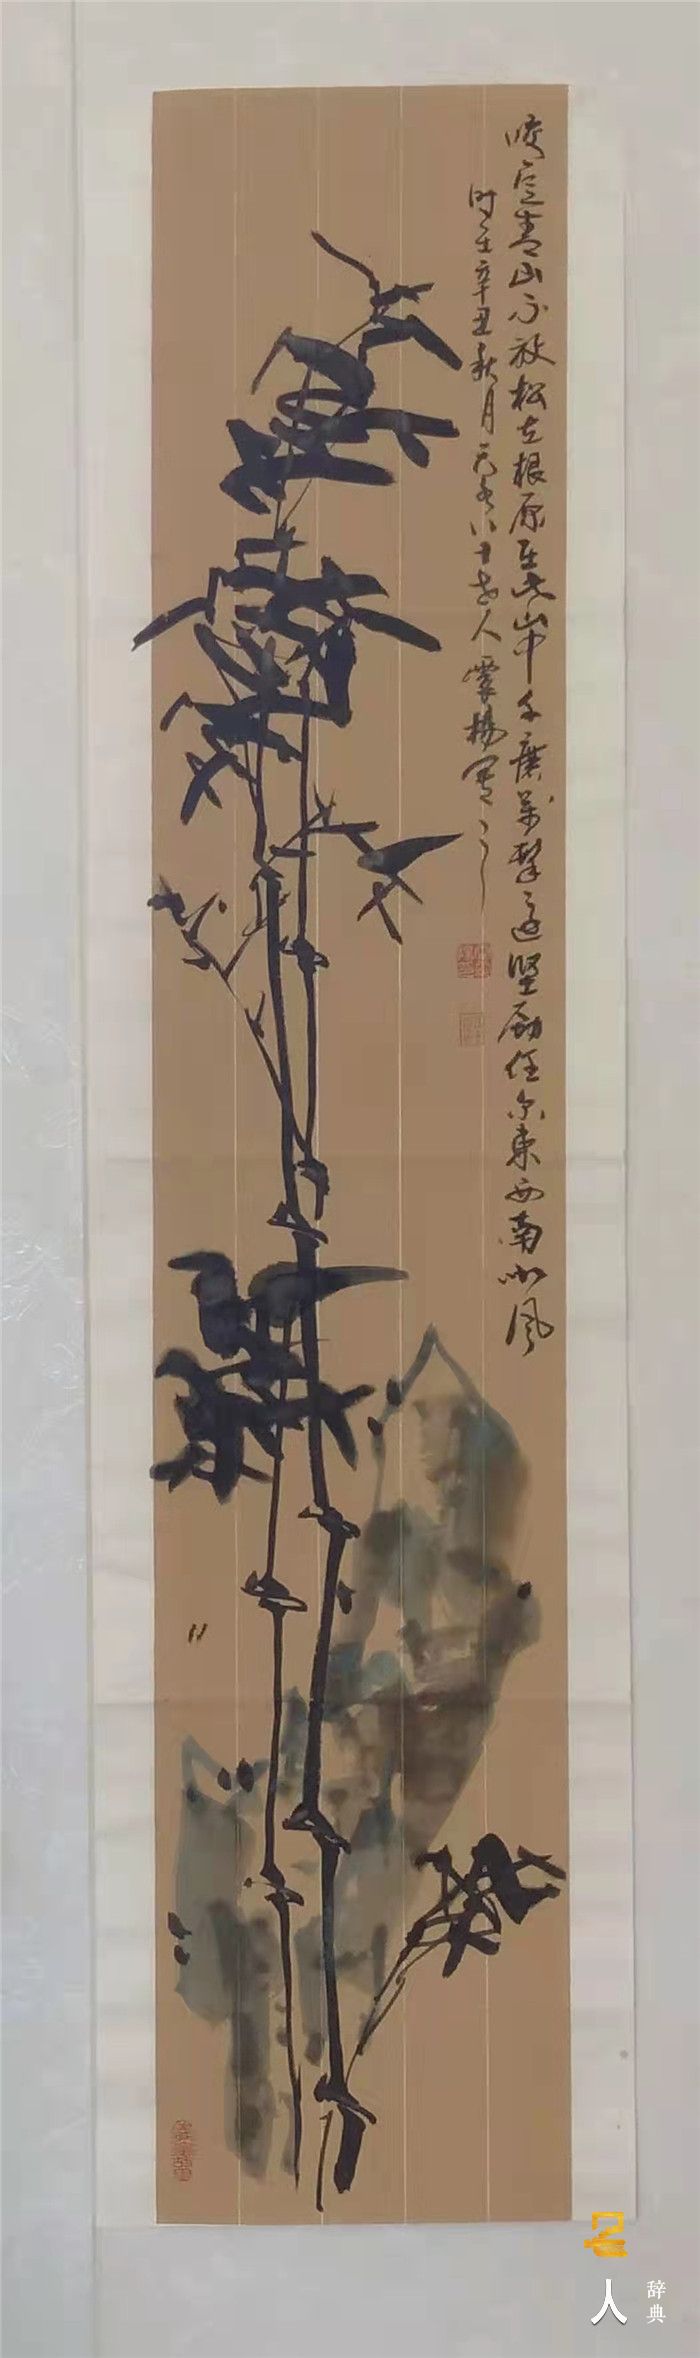 咬定青山不放松立根原在此山中千磨万击还坚劲任尔东西南北风
时在辛丑秋月天水八十老人震杨写之
名人
辞典